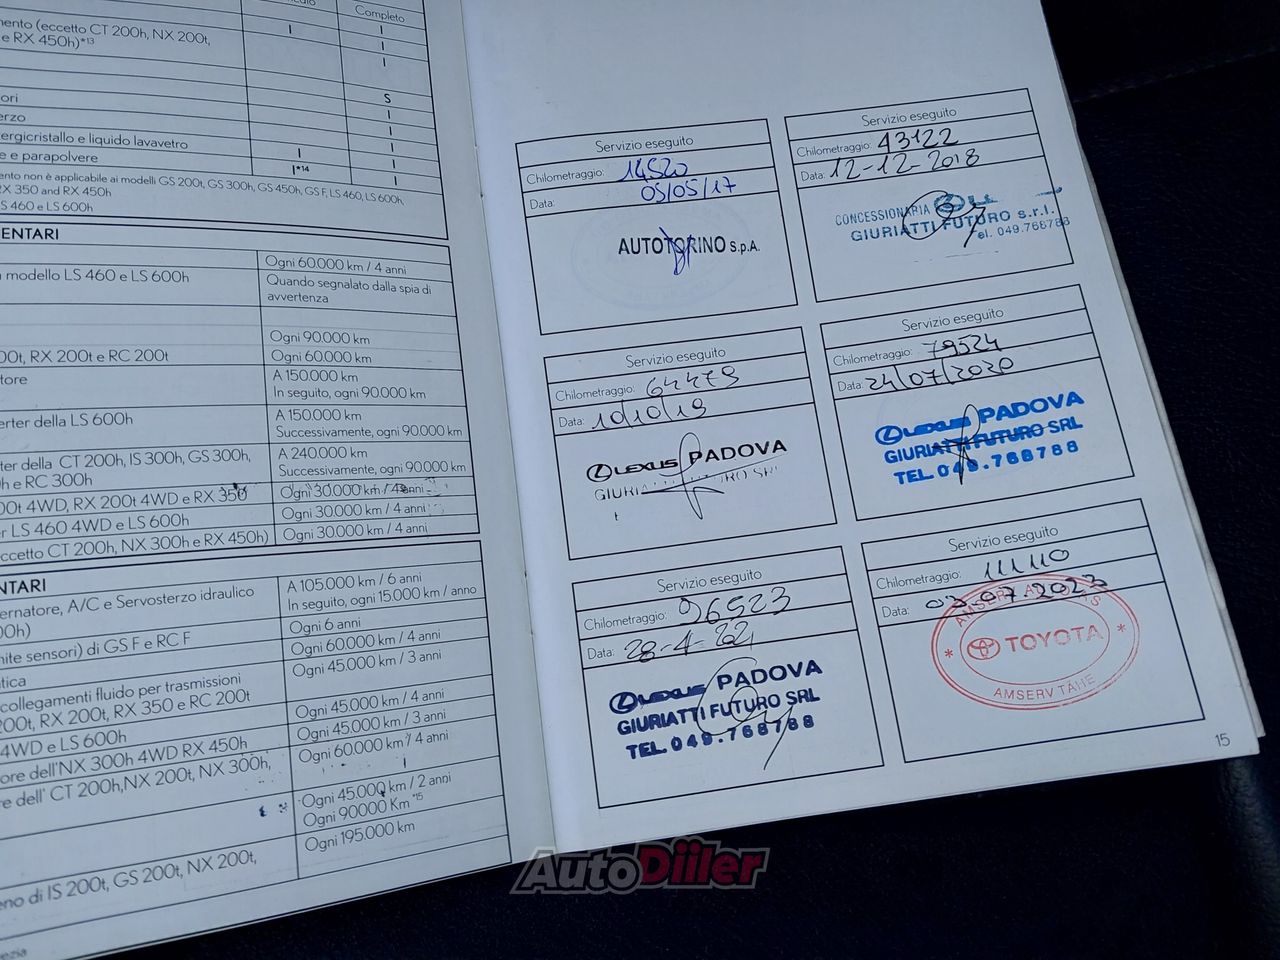 Completo
mento (eccetto CT 200h, NX 200t,
e RX 450h)*13
I
I
I
I
ori
S
erzo
I
ergicristallo e liquido lavavetro
I
e e parapolvere
I
I
I*14
I
ento non è applicabile ai modelli GS 200t, GS 300h, GS 450h, GS F, LS 460, LS 600h,
RX 350 and RX 450h
S 460 e LS 600h
ENTARI
Ogni 60.000 km / 4 anni
modello LS 460 e LS 600h
Quando segnalato dalla spia di
avvertenza
Ogni 90.000 km
00t, RX 200t e RC 200t
Ogni 60.000 km
tore
A 150.000 km
In seguito, ogni 90.000 km
erter della LS 600h
A 150.000 km
Successivamente, ogni 90.000 km
ter della CT 200h, IS 300h, GS 300h,
h e RC 300h
A 240.000 km
Successivamente, ogni 90.000 km
00t 4WD, RX 200t 4WD e RX 350
Ogni 30.000 km / 4 anni
er LS 460 4WD e LS 600h
Ogni 30.000 km / 4 anni
ccetto CT 200h, NX 300h e RX 450h)
Ogni 30.000 km / 4 anni
NTARI
ernatore, A/C e Servosterzo idraulico
00h)
A 105.000 km / 6 anni
In seguito, ogni 15.000 km / anno
Ogni 6 anni
nite sensori) di GS F e RC F
Ogni 60.000 km / 4 anni
tica
Ogni 45.000 km / 3 anni
collegamenti fluido per trasmissioni
200t, RX 200t, RX 350 e RC 200t
Ogni 45.000 km / 4 anni
4WD e LS 600h
Ogni 45.000 km / 3 anni
ore dell'NX 300h 4WD RX 450h
Ogni 60.000 km / 4 anni
re dell' CT 200h, NX 200t, NX 300h,
Ogni 45.000 km / 2 anni
Ogni 90000 Km *15
Ogni 195.000 km
eno di IS 200t, GS 200t, NX 200t,
ezia
Servizio eseguito
Chilometraggio: 14520
Data: 05/05/17
AUTOTORINO S.p.A.
Servizio eseguito
Chilometraggio: 43122
Data: 12-12-2018
CONCESSIONARIA
GIURIATTI FUTURO s.r.l.
Tel. 049.768788
Servizio eseguito
Chilometraggio: 64479
Data: 10/10/19
LEXUS PADOVA
GIURIATTI FUTURO SRL
Servizio eseguito
Chilometraggio: 79524
Data: 24/07/2020
LEXUS PADOVA
GIURIATTI FUTURO SRL
TEL. 049.768788
Servizio eseguito
Chilometraggio: 96523
Data: 28-4-22
LEXUS PADOVA
GIURIATTI FUTURO SRL
TEL. 049.768788
Servizio eseguito
Chilometraggio: 111110
Data: 03.07.2023
TOYOTA
AMSERV TÄHE
15
AutoDiiler